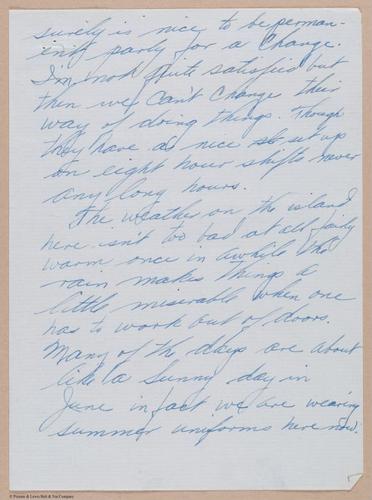 surely is nice to be perman-
ently party for a change.
I'm not quite satisfied but
then we can't change their
way of doing things. Though
they have as nice set up
on eight hour shifts never
any long hours.
The weather on the island
here isn't too bad at all fairly
warm once in awhile the
rain makes things a
little miserable when one
has to work out of doors.
Many of the days are about
like a sunny day in
June in fact we are wearing
summer uniforms here now.